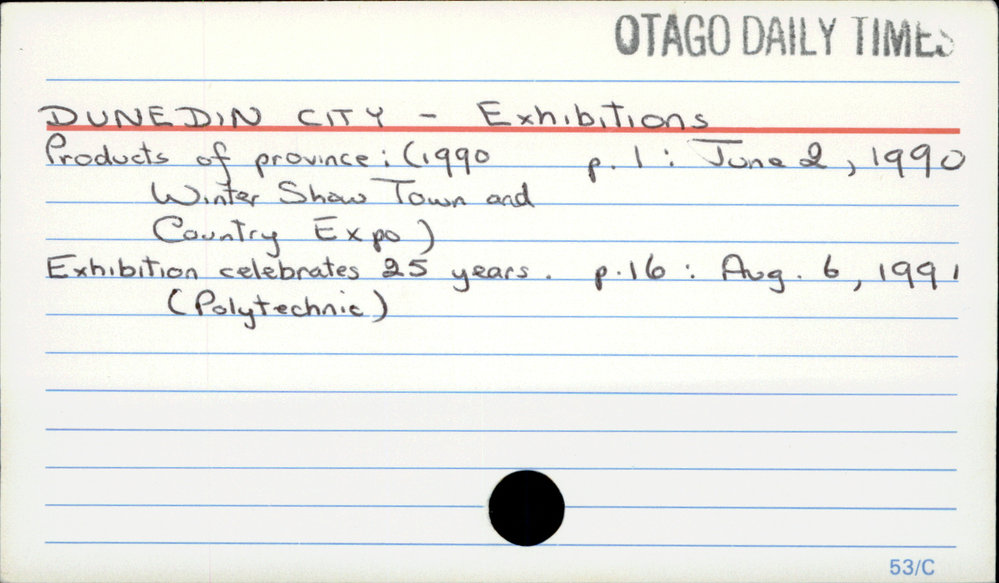 OTAGO DAILY TIMES
DUNEDIN CITY - Exhibitions
Products of province : (1990 p. 1 : June 2, 1990
Winter Show Town and
Country Expo)
Exhibition celebrates 25 years. p.16 : Aug. 6, 1991
(Polytechnic)
53/C